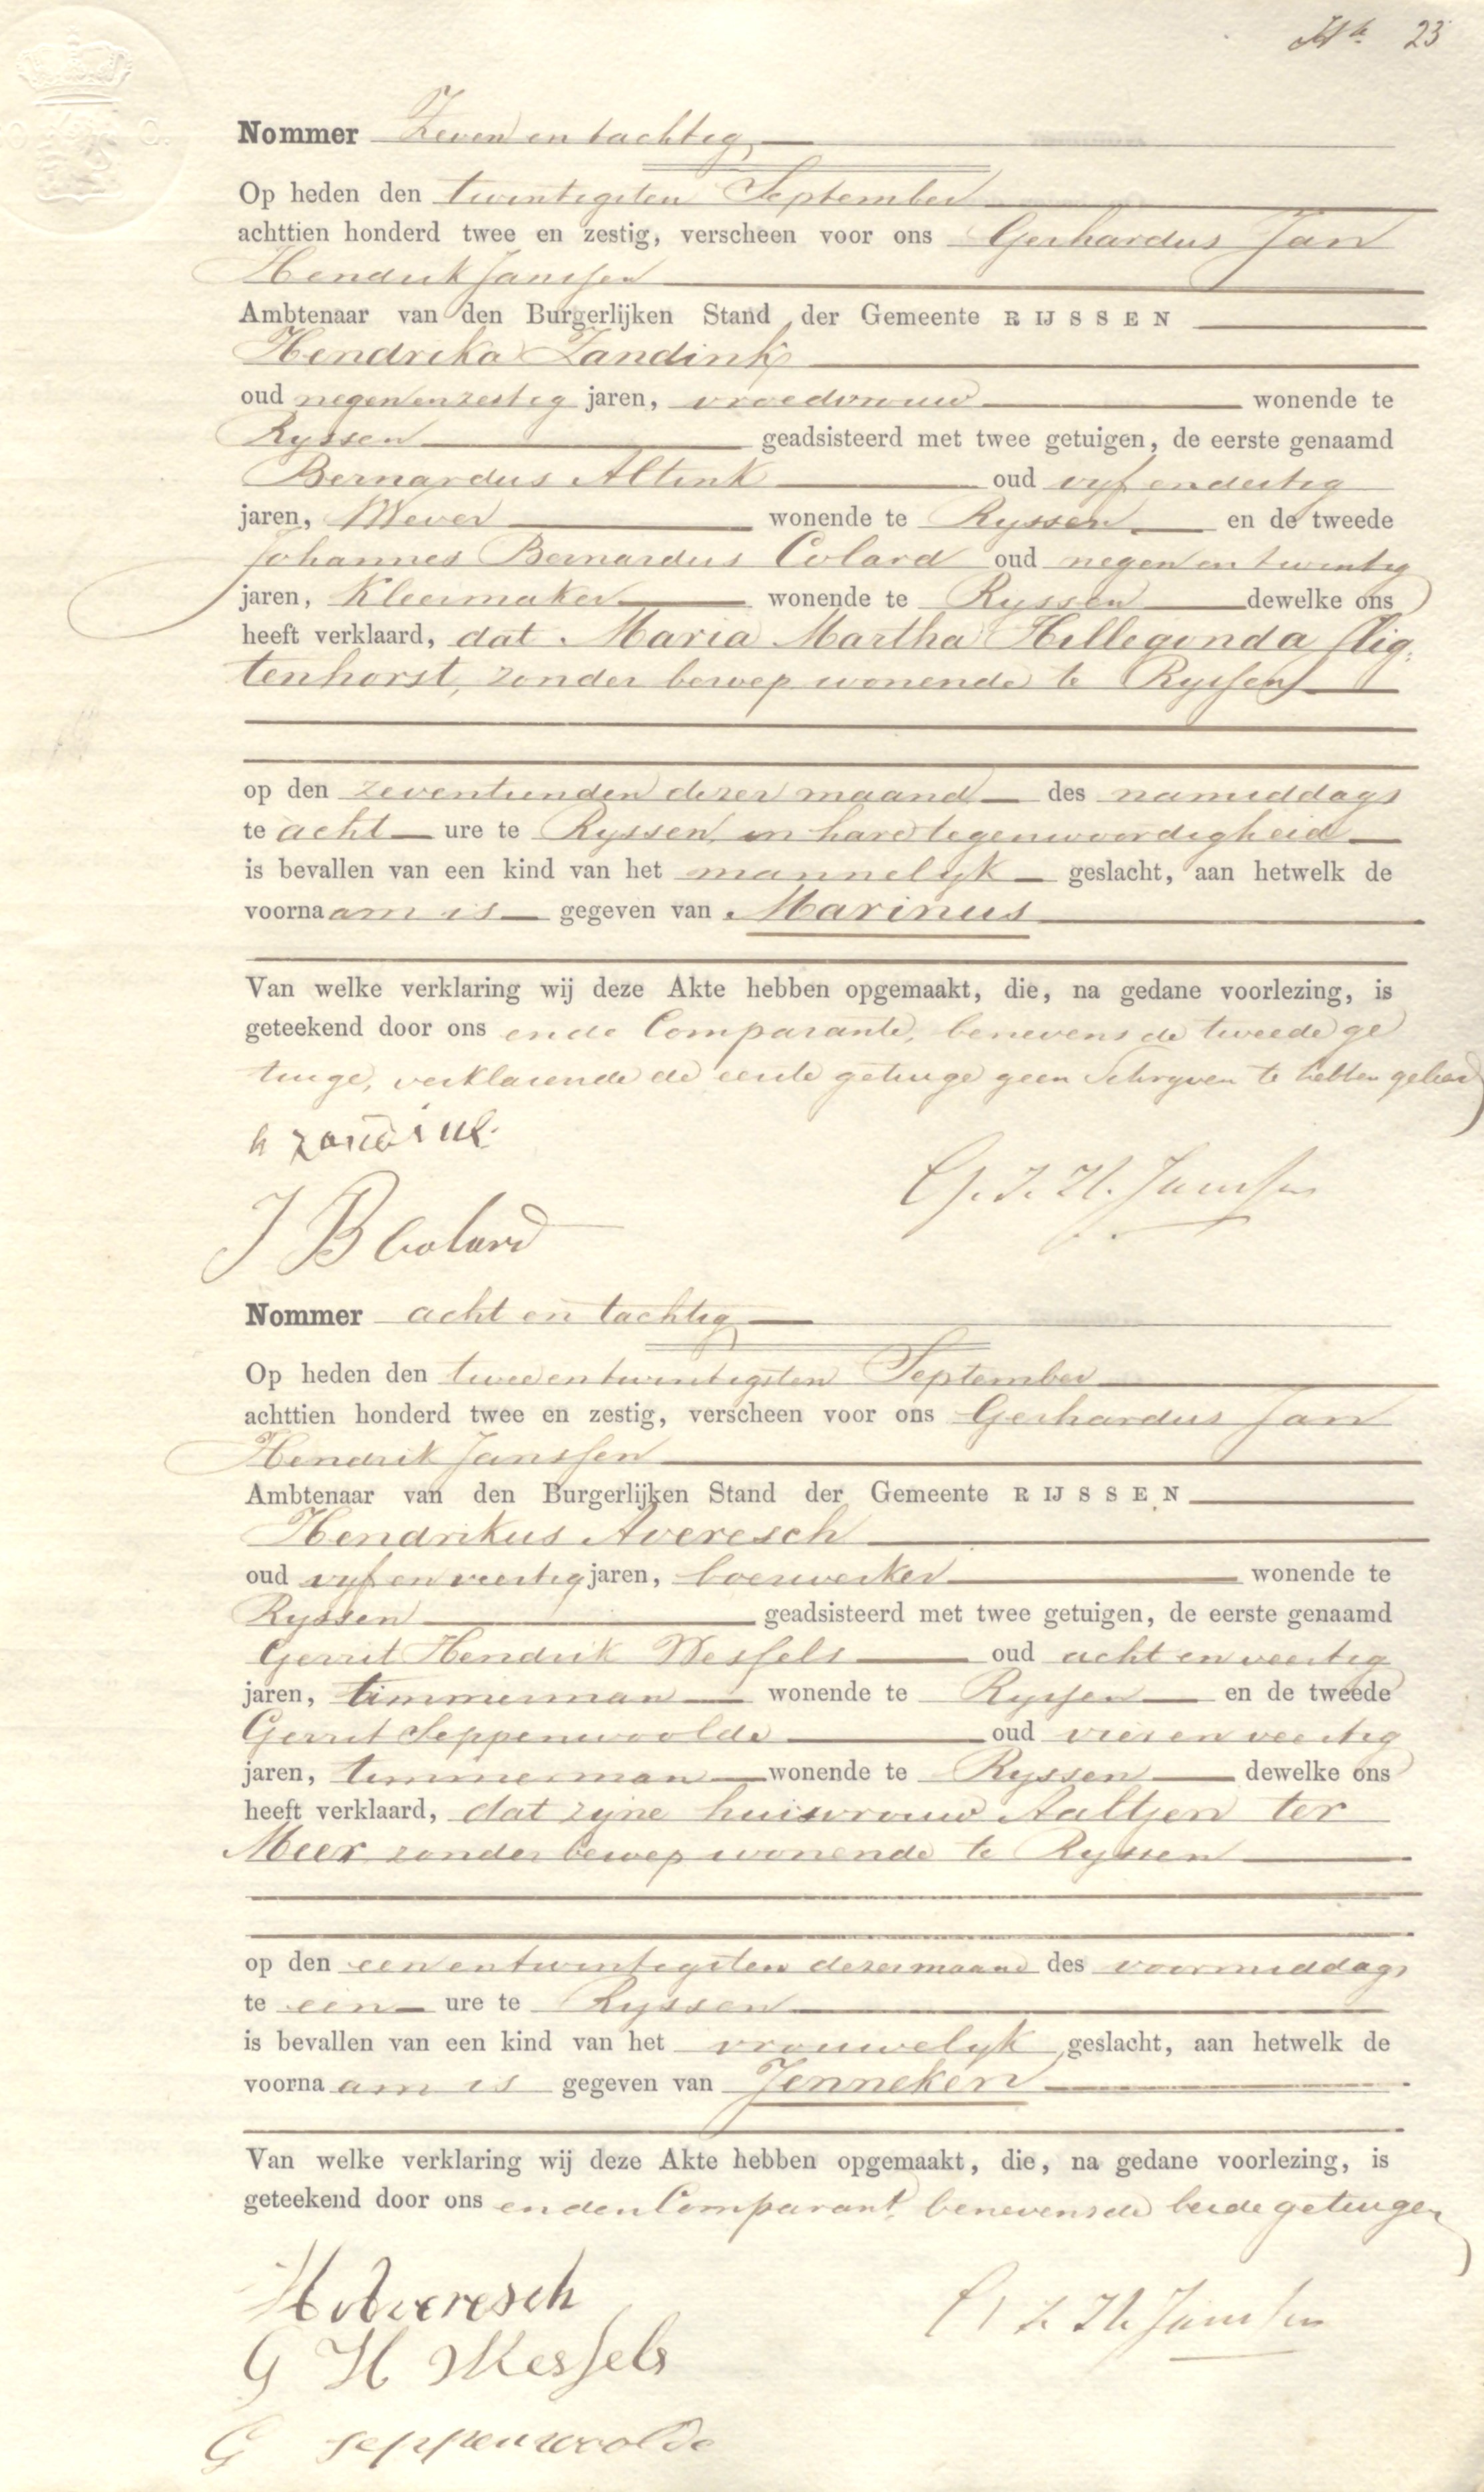 23
Nommer Zeven en tachtig
Op heden den twintigsten September
achttien honderd twee en zestig, verscheen voor ons Gerhardus Jan
Hendrik Janssen
Ambtenaar van den Burgerlijken Stand der Gemeente RIJSSEN
Hendrika Zandink
oud negen en zestig jaren, vroedvrouw wonende te
Ryssen geadsisteerd met twee getuigen, de eerste genaamd
Bernardus Altink oud vyf en dertig
jaren, Wever wonende te Ryssen en de tweede
Johannes Bernardus Colard oud negen en twintig
jaren, Kleermaker wonende te Ryssen dewelke ons
heeft verklaard, dat Maria Martha Hillegonda Slig-
tenhorst, zonder beroep wonende te Ryssen
op den zeventienden dezer maand des namiddags
te acht ure te Ryssen, in hare tegenwoordigheid
is bevallen van een kind van het mannelyk geslacht, aan hetwelk de
voornaam is gegeven van Marinus
Van welke verklaring wij deze Akte hebben opgemaakt, die, na gedane voorlezing, is
geteekend door ons en de Comparante, benevens de tweede ge
tuige, verklarende de eerste getuige geen Schryven te hebben geleerd
h zandink
G. J. H. Janssen
J B Colard
Nommer acht en tachtig
Op heden den twee en twintigsten September
achttien honderd twee en zestig, verscheen voor ons Gerhardus Jan
Hendrik Janssen
Ambtenaar van den Burgerlijken Stand der Gemeente RIJSSEN
Hendrikus Averesch
oud vyf en veertig jaren, boerwerker wonende te
Ryssen geadsisteerd met twee getuigen, de eerste genaamd
Gerrit Hendrik Wessels oud acht en veertig
jaren, timmerman wonende te Ryssen en de tweede
Gerrit Seppenwoolde oud vier en veertig
jaren, timmerman wonende te Ryssen dewelke ons
heeft verklaard, dat zyne huisvrouw Aaltjen ter
Meer zonder beroep wonende te Ryssen
op den een en twintigsten dezer maand des voormiddags
te een ure te Ryssen
is bevallen van een kind van het vrouwelyk geslacht, aan hetwelk de
voornaam is gegeven van Jenneken
Van welke verklaring wij deze Akte hebben opgemaakt, die, na gedane voorlezing, is
geteekend door ons en den Comparant, benevens de beide getuigen
H Averesch
G J H Janssen
G H Wessels
G seppenwoolde